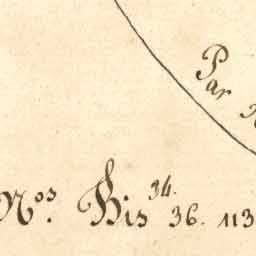 Par
Nos. Bis 34. 36. 113